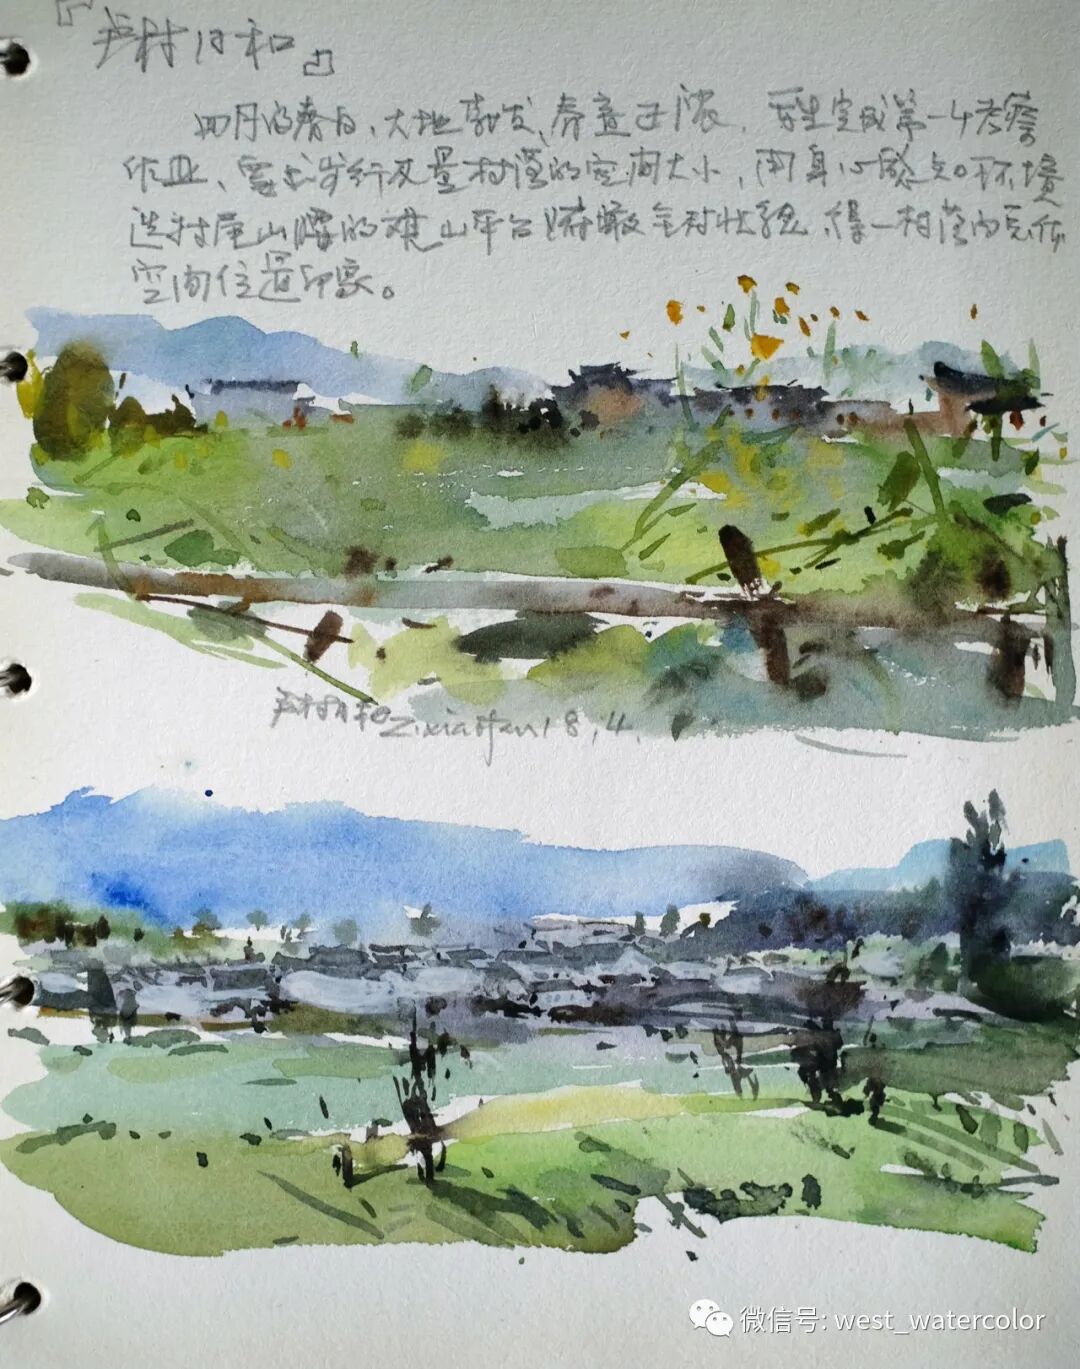 『卢村日和』
四月的春日、大地勃发、春意正浓，学生完成第一个考察
作业、需步行丈量村落的空间大小，用身心感知环境
选村尾山腰的观山平台俯瞰全村状貌，得一村落的总体
空间位置印象。
卢村日和 Zixiaofan 18.4.
微信号: west_watercolor